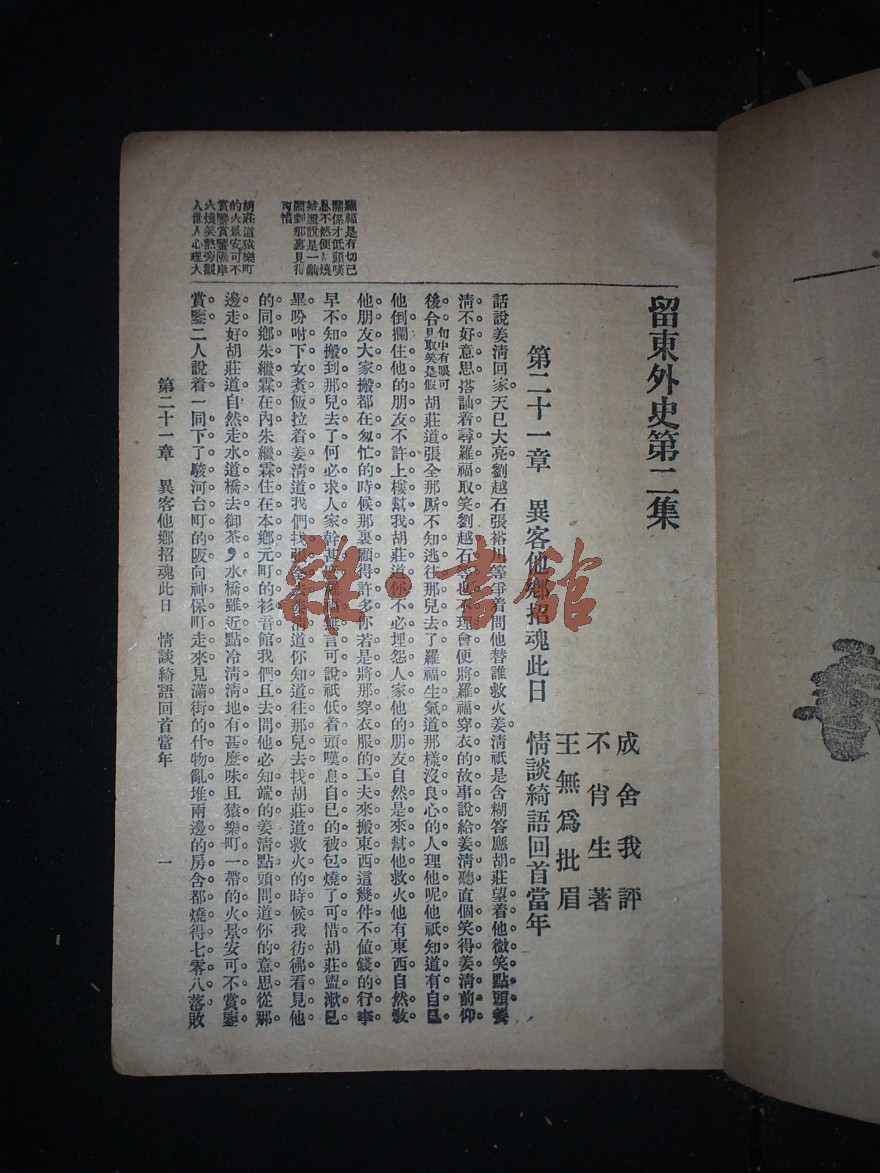 留東外史第二集
成舍我評
不肖生著
王無爲批眉
第二十一章　異客他鄉招魂此日　情談綺語回首當年
話說姜清回家天已大亮劉越石張裕川等爭着問他替誰救火姜清祇是含糊答應胡莊望着他微笑點頭姜
清不好意思搭訕着尋羅福取笑劉越石等也不理會便將羅福穿衣的故事說給姜清聽直個笑得姜清前仰
後合句中有眼可見取笑是假胡莊道張全那厮不知逃往那兒去了羅福生氣道那樣沒良心的人理他呢他祇知道有自己
他倒攔住他的朋友不許上樓幫我胡莊道你不必埋怨人家他的朋友自然是來幫他救火他有東西自然敎
他朋友大家搬都在匆忙的時候那裏顧得許多你若是將那穿衣服的工夫來搬東西這幾件不值錢的行李
早不知搬到那兒去了何必求人家幹甚麼羅福無言可說祇低着頭嘆息自已的被包燒了可惜胡莊盥漱已
畢吩咐下女煮飯拉着姜清道我們找張全去姜清道你知道往那兒去找胡莊道救火的時候我彷彿看見他
的同鄉朱繼霖在內朱繼霖住在本鄉元町的衫音館我們且去問他必知端的姜清點頭問道你的意思從那
邊走好胡莊道自然走水道橋去御茶，水橋雖近點冷清清地有甚麼味且猿樂町一帶的火景安可不賞鑒
賞鑒二人說着一同下了駿河台町的阪向神保町走來見滿街的什物亂堆兩邊的房舍都燒得七零八落敗
羅福是有切己
關係才低頭嘆
息不然便燒
城還說是一齣
關劇那裏見得
可惜
胡莊道猿樂町
的火景安可不
賞鑒賞鑒隔岸
火燒笑熱旁觀
人世人心理大
第二十一章　異客他鄉招魂此日　情談綺語回首當年　一
雜·書館